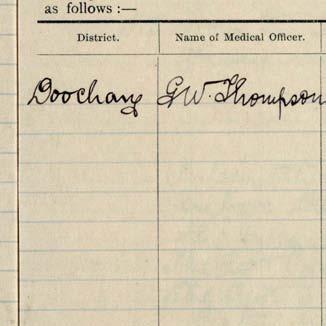 as follows :—
District. Name of Medical Officer.
Doochary G.W. Thompson